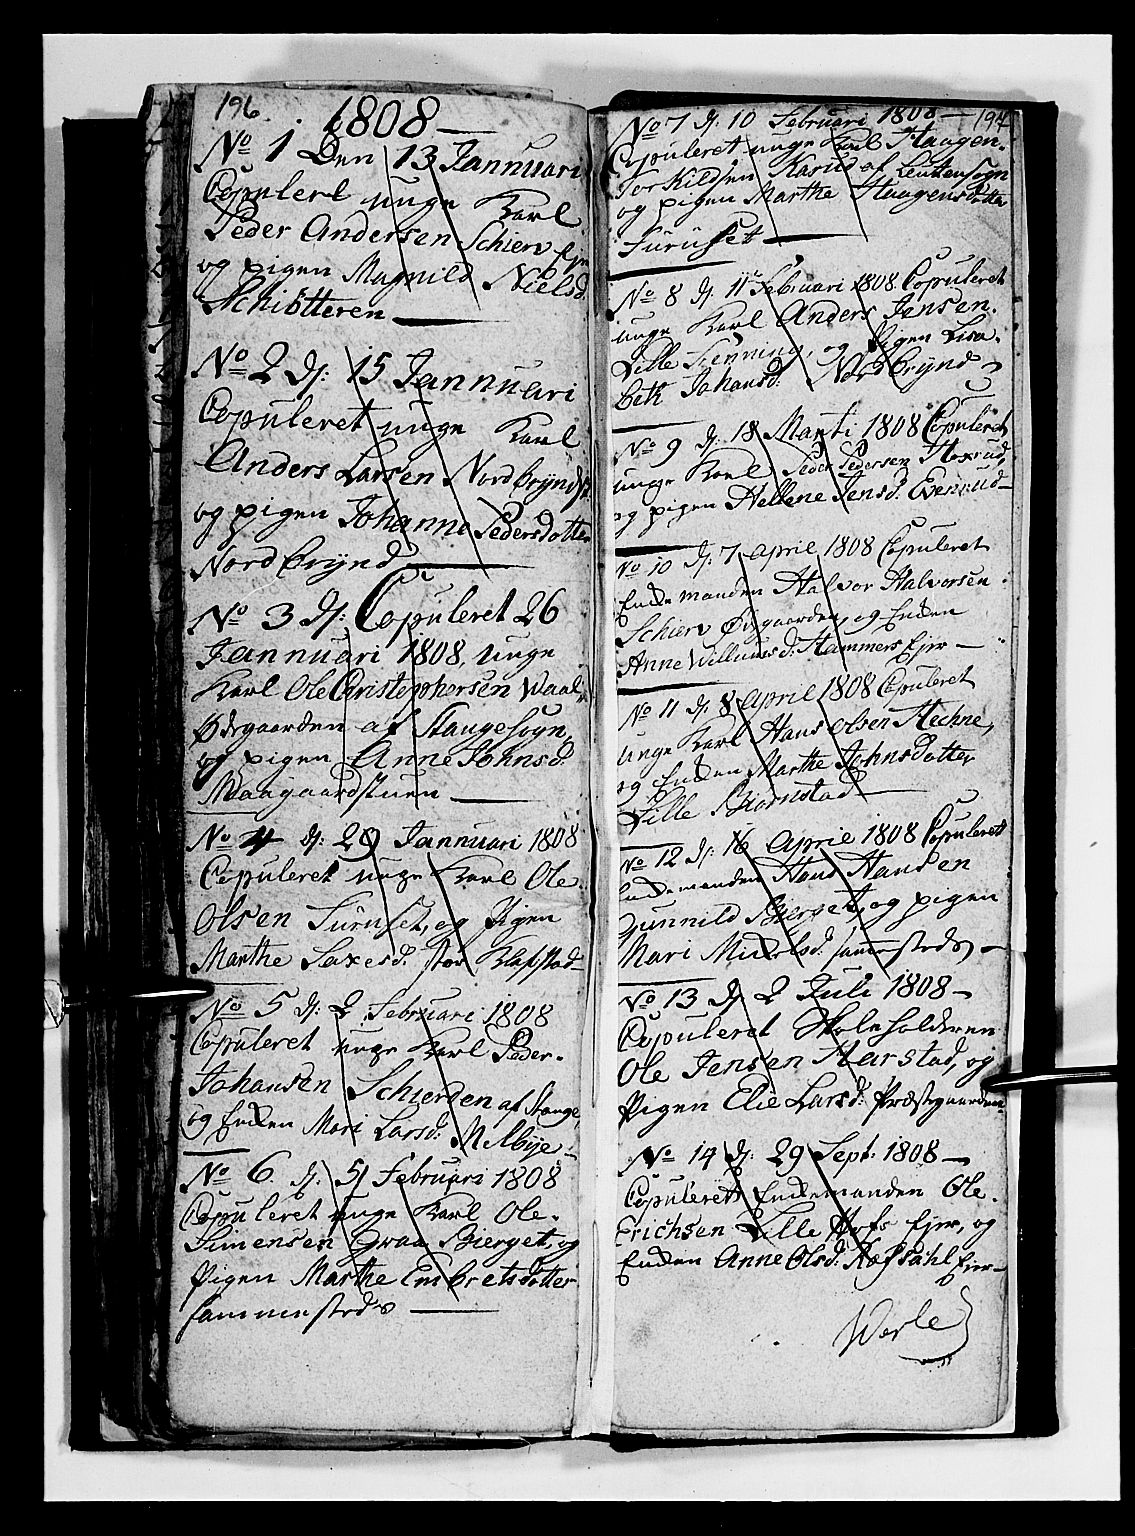 196
1808
No 1 Den 13 Jannuari
Copulert unge Karl
Peder Andersen Schierv Ejer
og pigen Magnild Nielsd.
Schiötteren
No 2 dj: 15 Jannuari
Copuleret unge Karl
Anders Larsen Nordbrÿnd
og pigen Johanne Pedersdotter
Nordbrÿnd
No 3 dj: Copuleret 26
Jannuari 1808, unge
Karl Ole Christophersen Waal
Ødegaarden af Stangesogn,
og pigen Anne Johnsd.
Maagaardstuen
No 4 dj: 29 Jannuari 1808
Copuleret unge Karl Ole
Olsen Furuset, og Pigen
Marthe Saxesd. stor Klafstad
No 5 dj: 2 Februari 1808
Copuleret unge Karl Peder
Johansen Schierden af Stange,
og Enken Mari Larsd: Melbÿe
No 6. dj. 5 Februari 1808
Copuleret unge Karl Ole
Simensen Graa Bierget, og
Pigen Marthe Embretsdotter
sammensteds
197
No 7 dj. 10 Februari 1808
Copuleret unge Karl Haagen
Torkildsen Karud af Leutensogn
og pigen Marthe Haagensdotter
Furuset
No 8 dj. 11 Februari 1808 Copuleret
unge Karl Anders Jensen
Lille Fenning, og Pigen Lisa
beth Johansd: Nordbrÿnd
No 9 dj. 18 Marti 1808 Copuleret
unge Karl Peder Pedersen Hoxrud
og pigen Hellene Jensd. Evenrud
No 10 dj: 7 april 1808 Copuleret
Enkemanden Halvor Halvorsen
Schierv Østgaarden, og Enken
Anne Willumsd: Hammers Ejer
No 11 dj. 8 april 1808 Copuleret
unge Karl Hans olsen Stechne,
og Enken Marthe Johnsdotter
Lille Biørnstad
No 12 dj: 16 Aprie 1808 Copuleret
Enkemanden Hans Hansen
Gunnild Bierget, og pigen
Mari Mickelsd. sammesteds
No 13 dj 2 Juli 1808
Copuleret Skoleholderen
Ole Jensen Harstad, og
Pigen Elie Larsd: Præstegaarden
No 14 dj: 29 Sept. 1808
Copuleret Enkemanden Ole
Erichsen Lille Hofs Ejer, og
Enken Anne Olsd: Kæfsahl Ejer
Werle